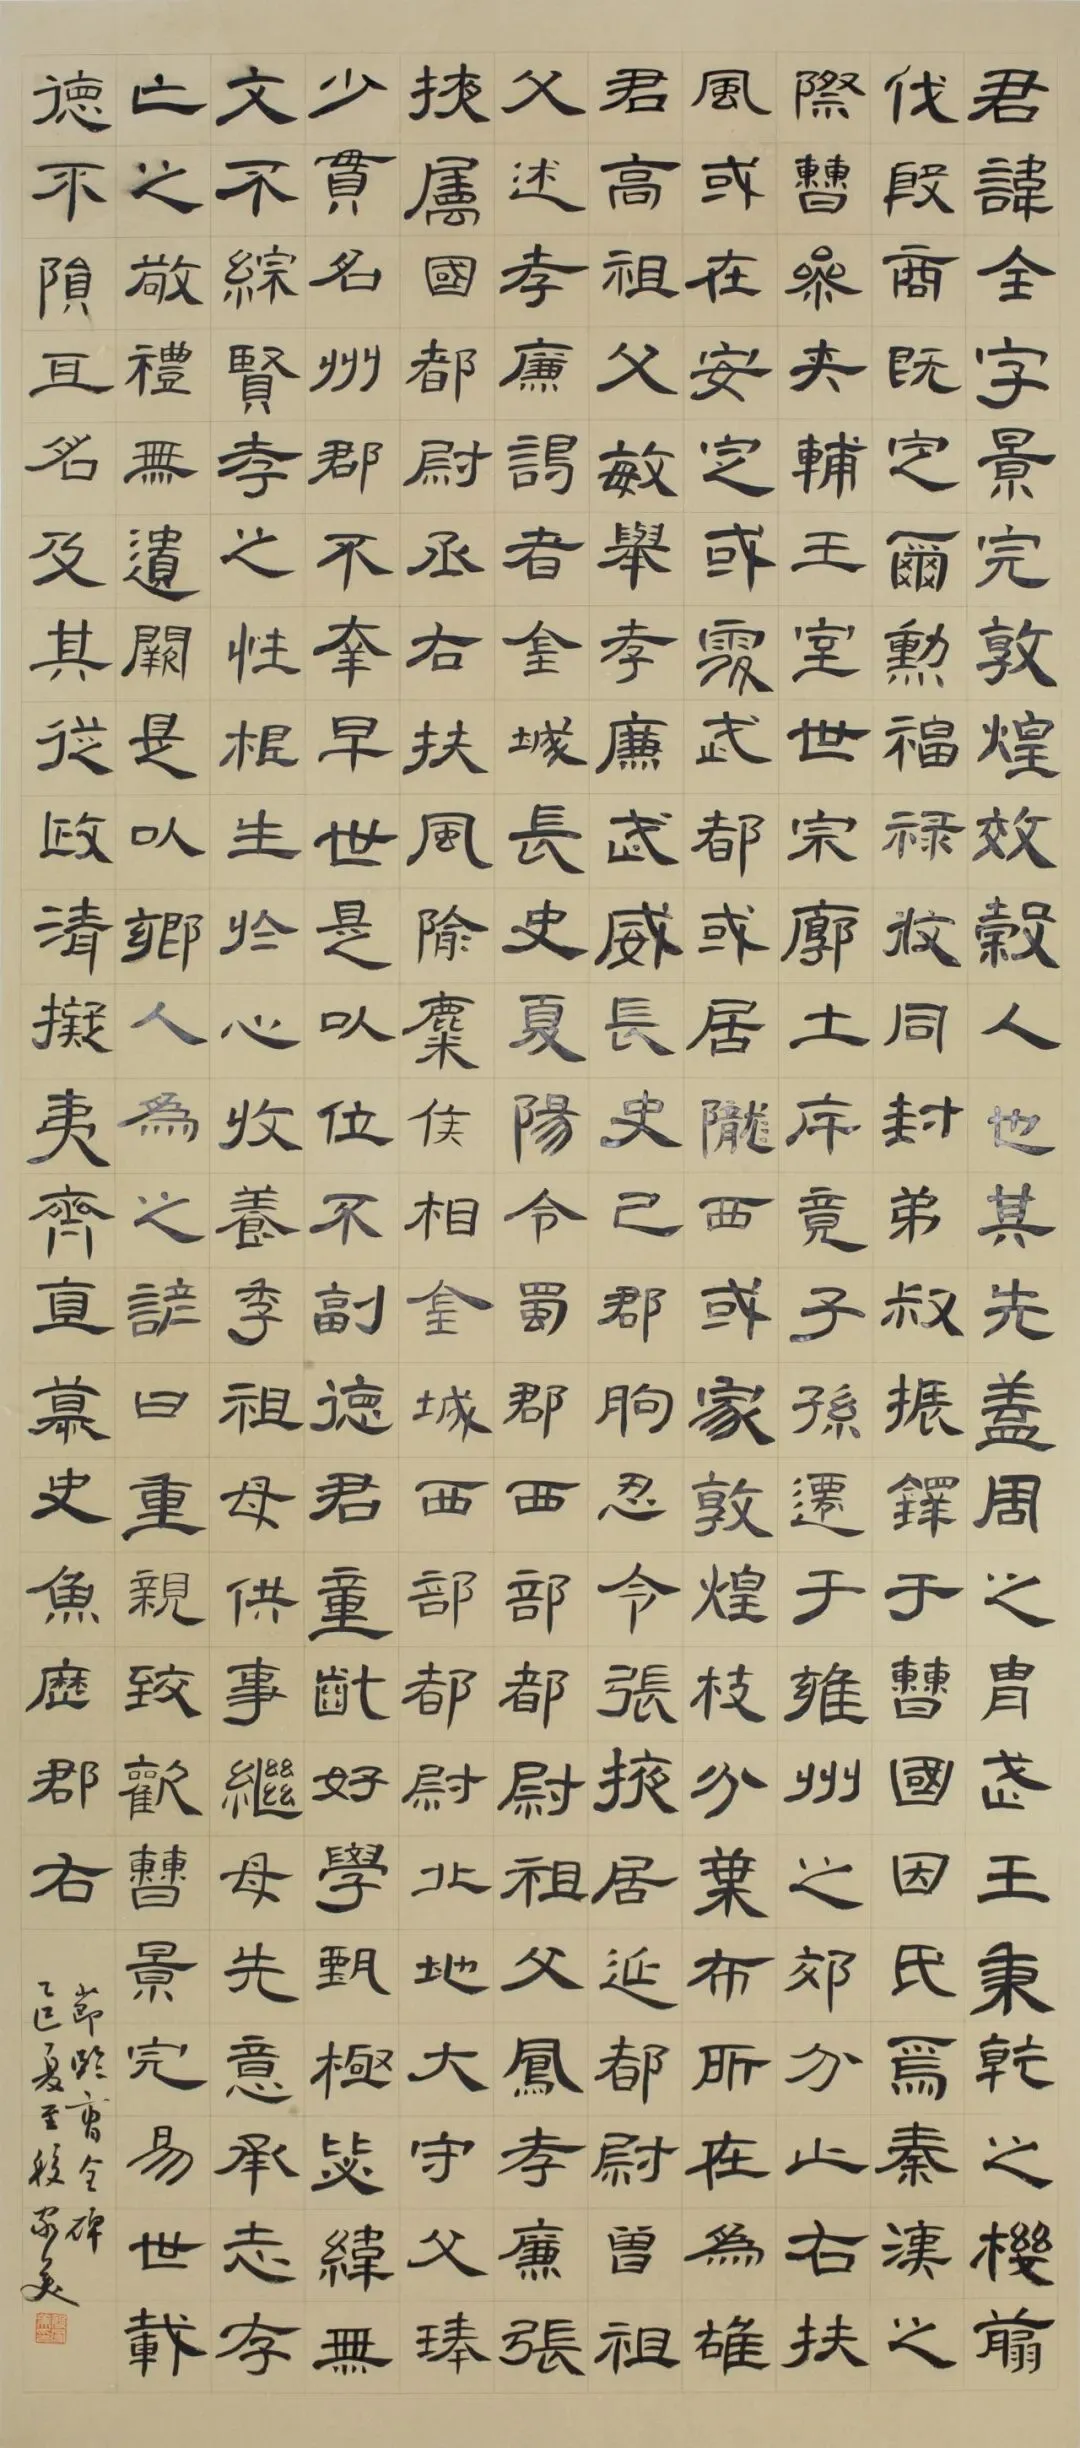 君諱全字景完敦煌效穀人也其先蓋周之胄武王秉乾之機翦
伐殷商既定爾勳福禄攸同封弟叔振鐸于曹國因氏焉秦漢之
際曹參夾輔王室世宗廓土斥竟子孫遷于雍州之郊分止右扶
風或在安定或處武都或居隴西或家敦煌枝分葉布所在為雄
君高祖父敏舉孝廉武威長史巳郡朐忍令張掖居延都尉曾祖
父述孝廉謁者金城長史夏陽令蜀郡西部都尉祖父鳳孝廉張
掖屬國都尉丞右扶風隃麋侯相金城西部都尉北地大守父琫
少貫名州郡不幸早世是以位不副德君童齔好學甄極毖緯無
文不綜賢孝之性根生於心收養季祖母供事繼母先意承志存
亡之敬禮無遺闕是以鄉人為之諺曰重親致歡曹景完易世載
德不隕其名及其從政清擬夷齊直慕史魚歷郡右
節臨曹全碑
乙巳夏至後